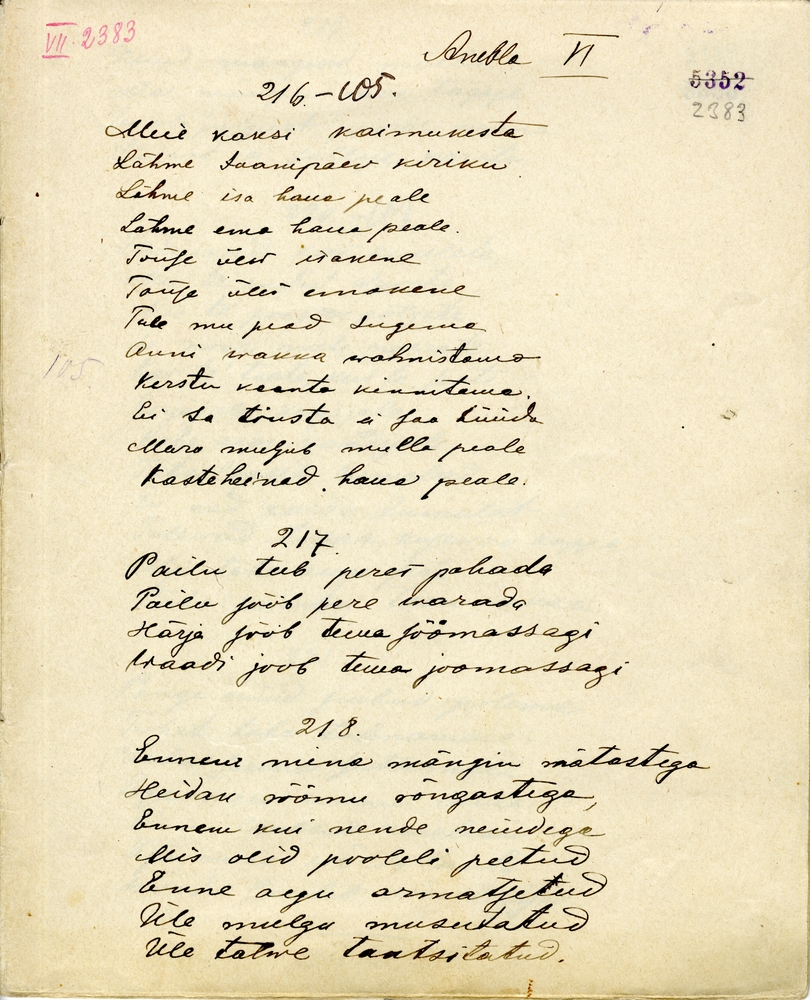 VII. 2383
Anebla VI
5352
2383
216.–105.
Meie kaksi kaimukesta
Lähme Jaanipäev kiriku
Lähme isa haua peale
Lähme ema haua peale.
Tõuse üles isakene
Tõuse üles emakene
Tule mu pead sugema
105
Anni wakka wahnistama
Kerstu kaante kinnitama.
Ei sa tõusta ei saa hüüda
Mara muljub mulla peale
Kasteheinad haua peale.
217.
Pailu teeb peres pahada
Pailu sööb pere warada
Härja sööb tema söömassagi
Waadi joob tema joomassagi
218.
Ennem mina mängin mätastega
Heidan rõõmu rõngastega,
Ennem kui nende neiudega
Mis olid pooleli peetud
Enne aegu armatsetud
Üle mulga musutatud
Üle talwe tantsitatud.